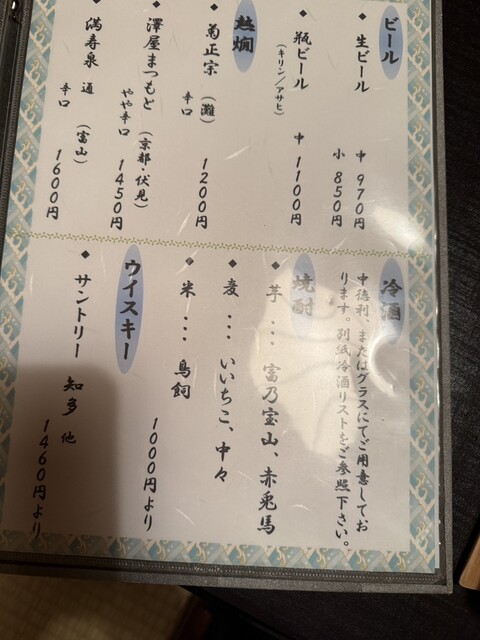 ビール
◆ 生ビール 中 970円
小 850円
◆ 瓶ビール 中 1100円
(キリン/アサヒ)
熱燗
◆ 菊正宗 (灘) 1200円
辛口
◆ 澤屋まつもと (京都・伏見) 1450円
やや辛口
◆ 満寿泉 通 (富山) 1600円
辛口
冷酒
中徳利、またはグラスにてご用意してお
ります。別紙冷酒リストをご参照下さい。
焼酎
◆ 芋 … 富乃宝山、赤兎馬
◆ 麦 … いいちこ、中々
◆ 米 … 鳥飼
1000円より
ウイスキー
◆ サントリー 知多 他
1460円より